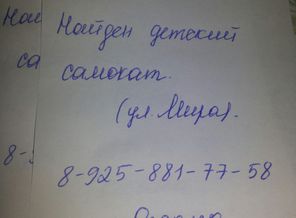 Найден детский
самокат.
(ул. Мира).
8-925-881-77-58